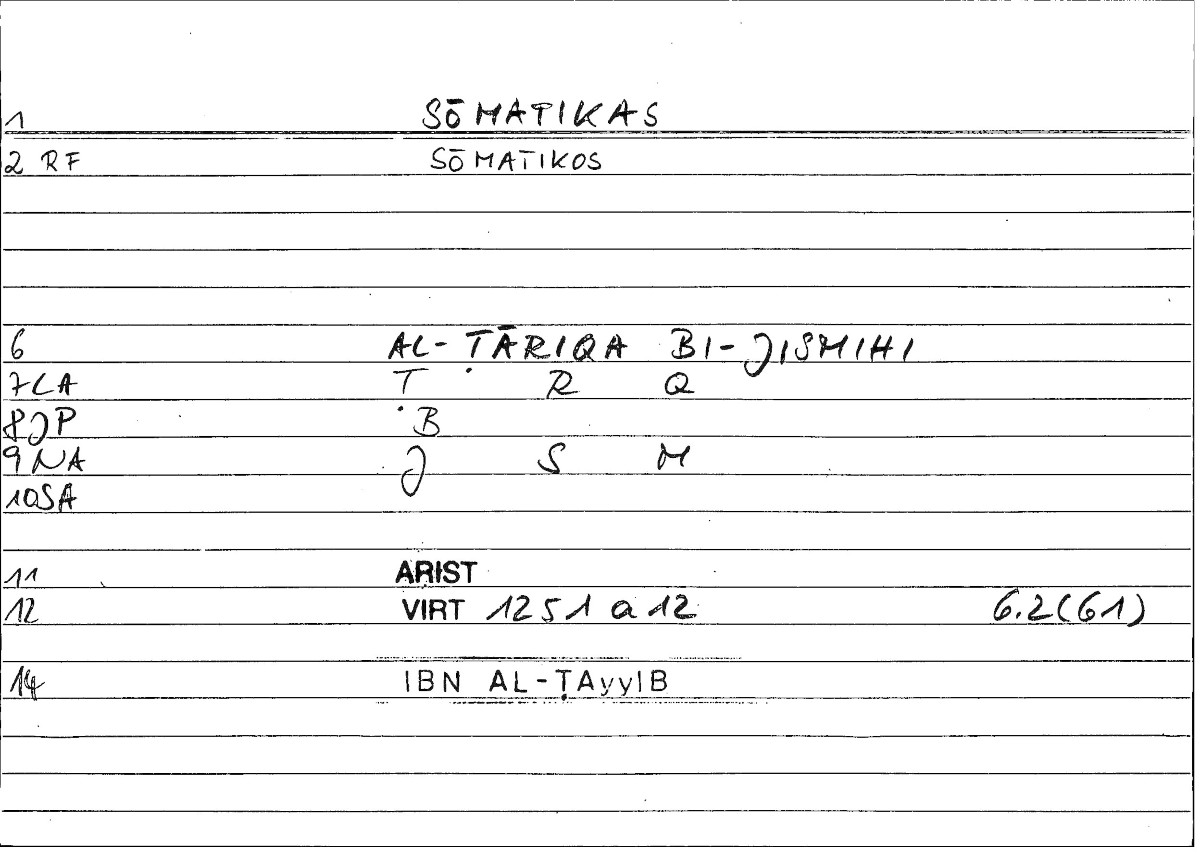 1 SŌMATIKAS
2 RF SŌMATIKOS
6 AL-ṬĀRIQA BI-JISMIHI
7LA Ṭ R Q
8JP B
9NA J S M
10SA
11 ARIST
12 VIRT 1251 a 12 6.2(61)
14 IBN AL-ṬAyyIB